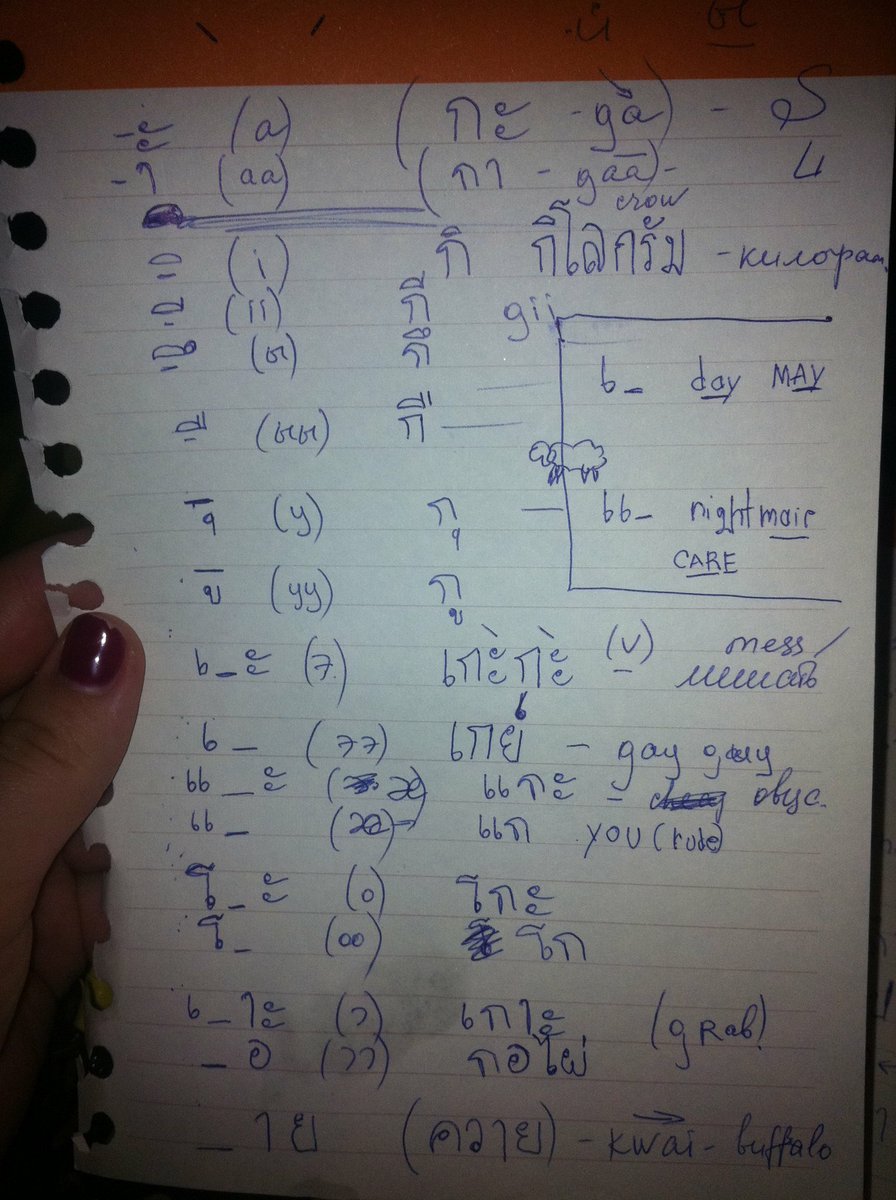 -ะ (a) (กะ - gà) - S
-า (aa) (กา - gāā) - L
crow
ิ (i) กิ กิโลกรัม - килограм.
ี (ii) กี gii
ึ (ы) กึ
ื (ыы) กื
เ_ day MAY
ุ (y) กุ แ_ nightmair
CARE
ู (yy) กู
เ_ะ (э) เก่ะก่ะ (v) mess/
мешать
เ_ (ээ) เกย์ - gay
แ_ะ แกะ - овца
แ_ แก you (rude)
โ_ะ (o) โกะ
โ_ (oo) โก
เ_าะ (ɔ) เกาะ (grab)
_อ (ɔɔ) กอไผ่
_าย (ควาย) - kwai - buffalo